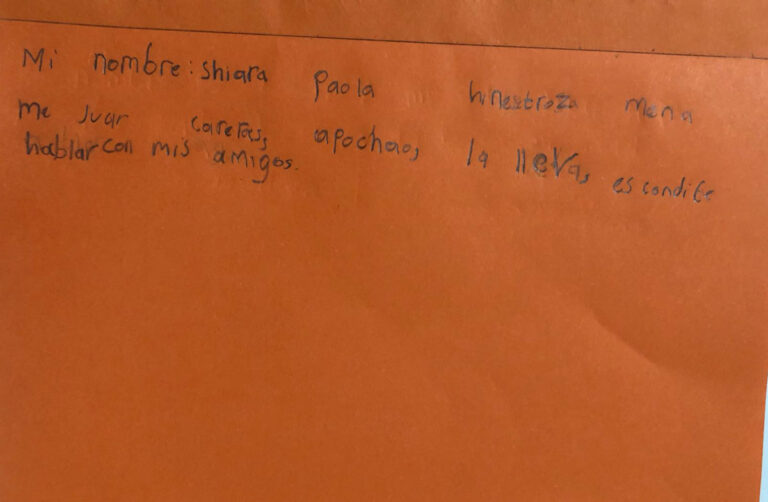 Mi nombre: shiara paola hinestroza mena
me Juar careras, apochao, la lleva, escondite
hablar con mis amigos.